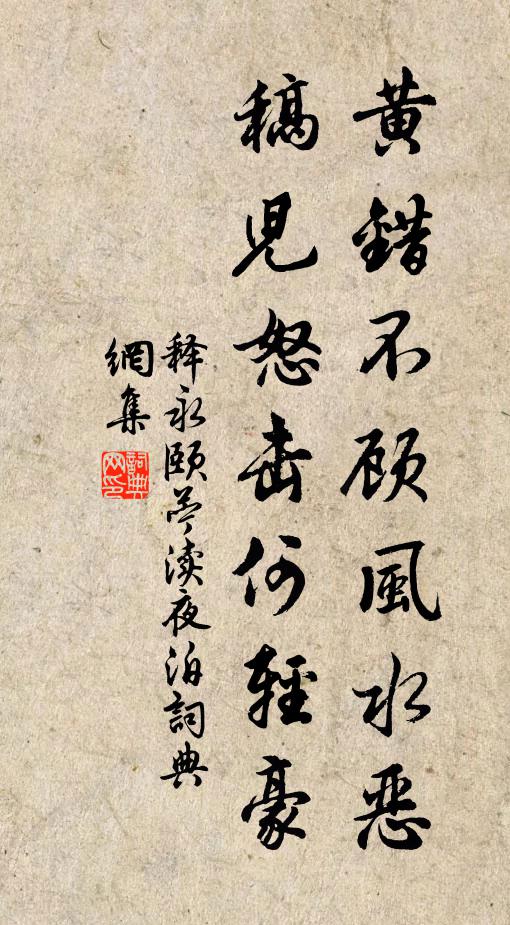 黄錯不顾風水惡
稿児怒击何輕豪
释永颐苓渎夜泊詞典
網集
詞典
网印